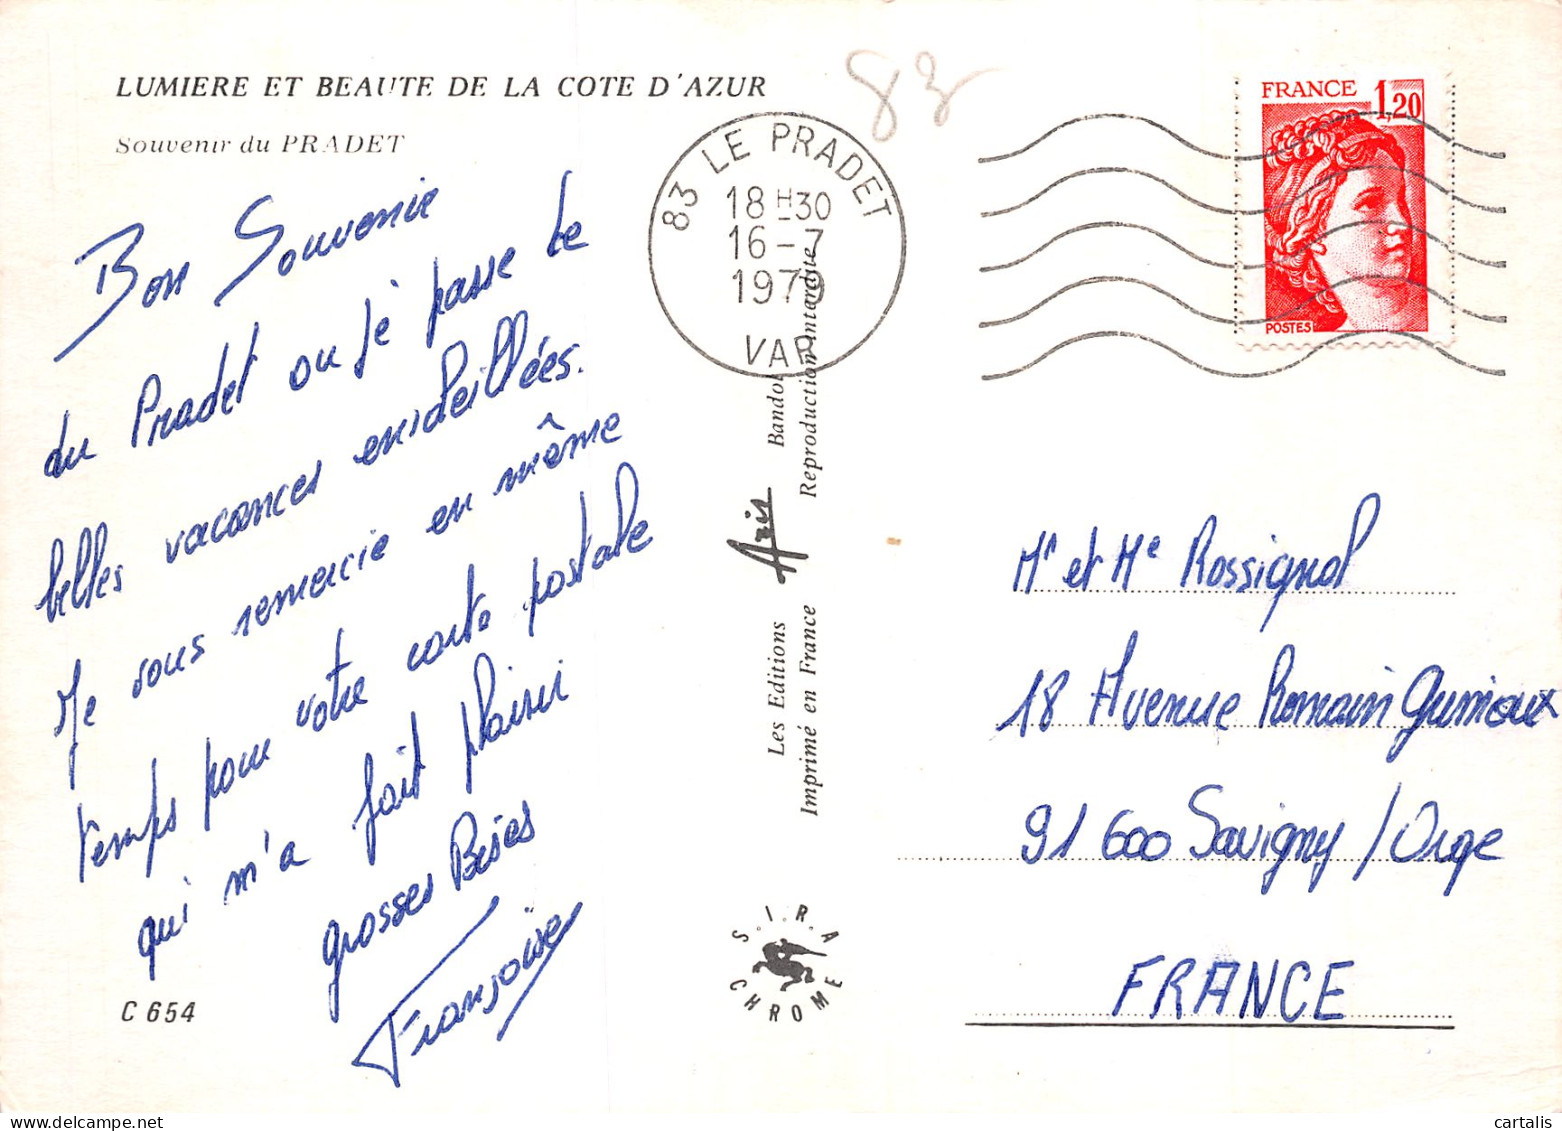 LUMIERE ET BEAUTE DE LA COTE D'AZUR
Souvenir du PRADET
83
83 LE PRADET
18 H 30
16 - 7
1979
VAR
FRANCE 1,20
POSTES
Bon Souvenir
du Pradet ou j'é passe de
belles vacances ensoleillées.
Je vous remercie en même
temps pour votre carte postale
qui m'a fait plaisir
grosses Bises
Françoise
C 654
Les Editions Aris Bandol
Imprimé en France Reproduction interdite
S.I.R.A
CHROME
Mr et Me Rossignol
18 Avenue Romain
91 600 Savigny / Orge
FRANCE
cartalis